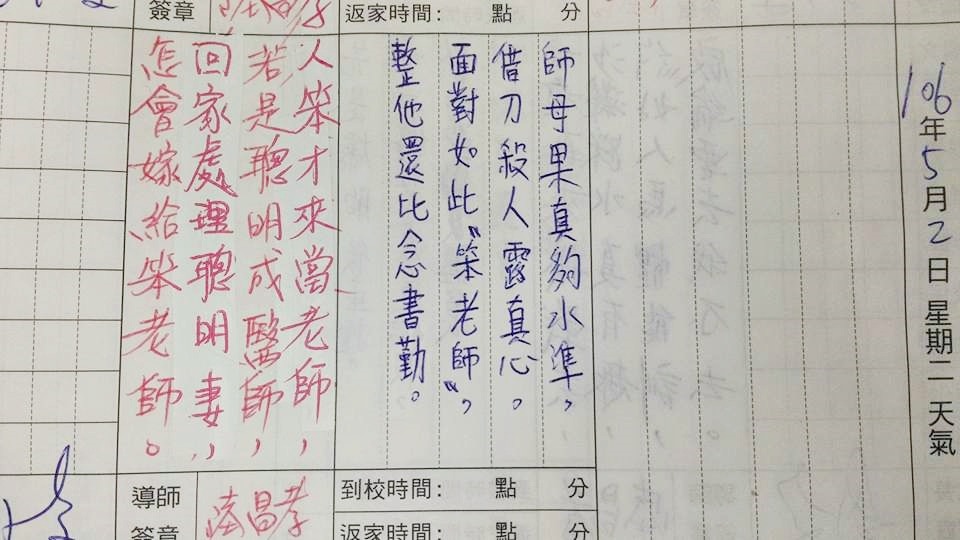 106年5月2日 星期二 天氣
師母果真夠水準，
借刀殺人露真心。
面對如此〝笨老師〞，
整他還比念書勤。
簽章
返家時間： 點 分
人笨才來當老師，
若是聰明成醫師，
回家處理聰明妻，
怎會嫁給笨老師。
到校時間： 點 分
返家時間： 點 分
導師
簽章
昌孝